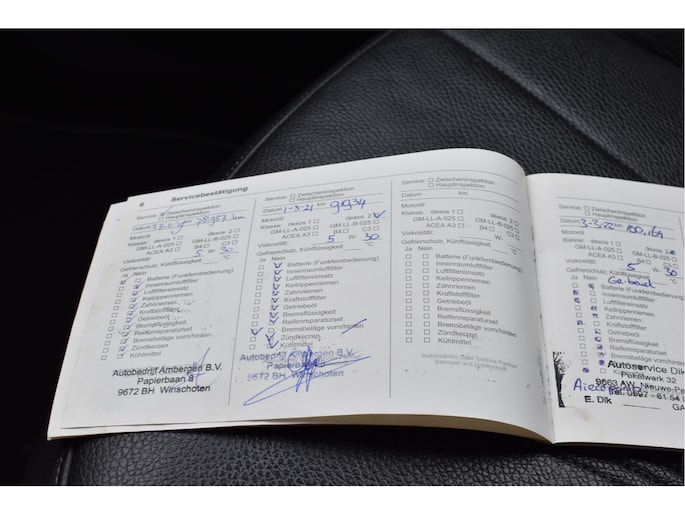 8 Servicebestätigung
Service: Zwischeninspektion
Hauptinspektion
Datum km 78957 km
Motoröl
Klasse: dexos 1 dexos 2
GM-LL-A-025 GM-LL-B-025
ACEA A3 B4 C3
Viskosität: 5 W- 30 °C
Gefrierschutz, Kühlflüssigkeit
Ja Nein
Batterie (Funkfernbedienung)
Innenraumluftfilter
Luftfiltereinsatz
Keilrippenriemen
Zahnriemen
Kraftstofffilter
Getriebeöl
Bremsflüssigkeit
Reifenreparaturset
Bremsbeläge vorn/hinten
Zündkerzen
Kühlmittel
Autobedrijf Ambergen B.V.
Papierbaan 8
9672 BH Winschoten
Service: Zwischeninspektion
Hauptinspektion
Datum 1-3-21 km 91934
Motoröl
Klasse: dexos 1 dexos 2
GM-LL-A-025 GM-LL-B-025
ACEA A3 B4 C3
Viskosität: 5 W- 30
Gefrierschutz, Kühlflüssigkeit °C
Ja Nein
Batterie (Funkfernbedienung)
Innenraumluftfilter
Luftfiltereinsatz
Keilrippenriemen
Zahnriemen
Kraftstofffilter
Getriebeöl
Bremsflüssigkeit
Reifenreparaturset
Bremsbeläge vorn/hinten
Zündkerzen
Kühlmittel
Autobedrijf Ambergen B.V.
Papierbaan
9672 BH Winschoten
Service: Zwischeninspektion
Hauptinspektion
Datum km
Motoröl
Klasse: dexos 1 dexos 2
GM-LL-A-025 GM-LL-B-025
ACEA A3 B4 C3
Viskosität: W-
Gefrierschutz, Kühlflüssigkeit °C
Ja Nein
Batterie (Funkfernbedienung)
Innenraumluftfilter
Luftfiltereinsatz
Keilrippenriemen
Zahnriemen
Kraftstofffilter
Getriebeöl
Bremsflüssigkeit
Reifenreparaturset
Bremsbeläge vorn/hinten
Zündkerzen
Kühlmittel
Autorisierter Opel Service Partner
Stempel und Unterschrift
Service: Zwischeninspektion
Hauptinspektion
Datum 3-3-22 km 100.169
Motoröl
Klasse: dexos 1 dexos 2
GM-LL-A-025 GM-LL-B-025
ACEA A3 B4 C3
Viskosität: 5 W- 30
Gefrierschutz, Kühlflüssigkeit °C
Ja Nein
Batterie (Funkfernbedienung)
Innenraumluftfilter
Luftfiltereinsatz
Keilrippenriemen
Zahnriemen
Kraftstofffilter
Getriebeöl
Bremsflüssigkeit
Reifenreparaturset
Bremsbeläge vorn/hinten
Autoservice Dik
Pekelwerk 32
9663 AW Nieuwe-Pe
Tel. 0597 - 61 54
E. Dik